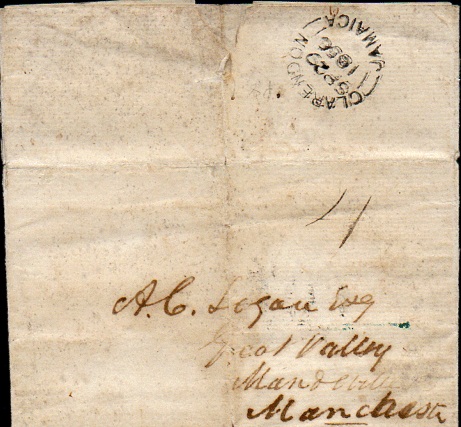 CLARENDON
JAMAICA
SP 20
4
A. C. Logan Esq
Great Valley
Mandeville
Manchester